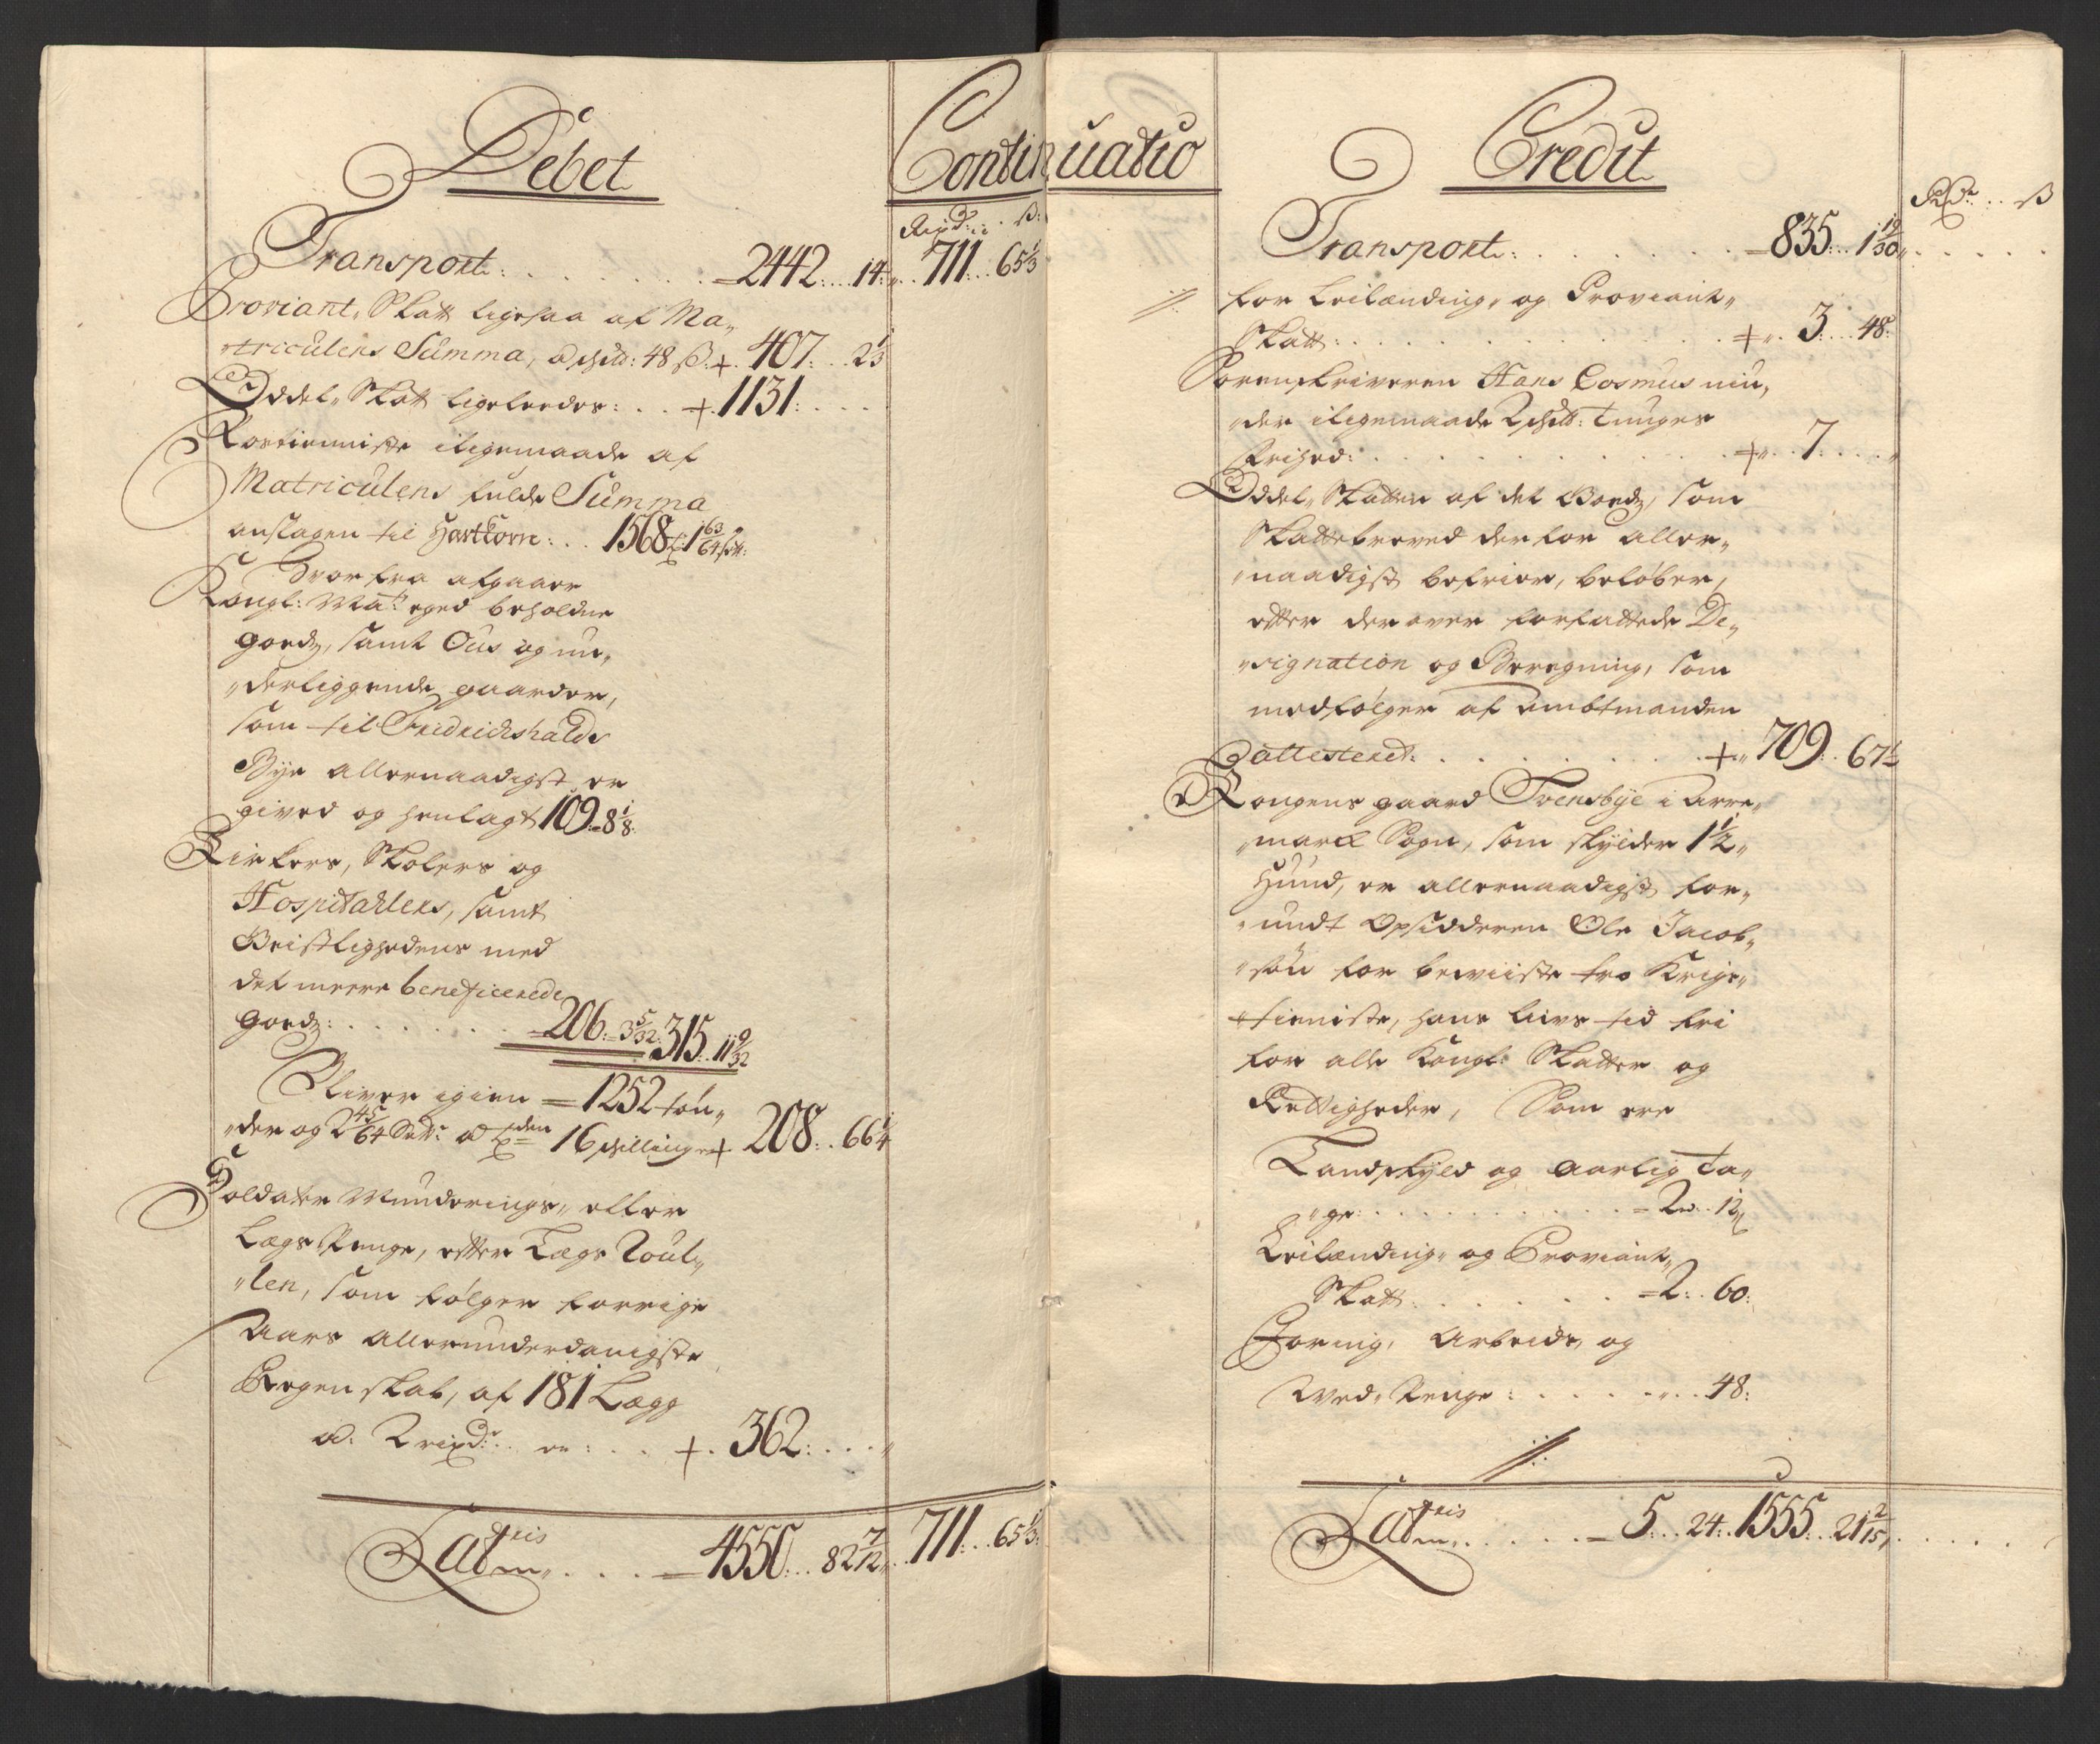 Debet
Continuatio
Rixd: ß:
Transport: = 2442: 14: 711: 65 1/3
Proviant, Skatt ligesaa af Ma„
„triculens Summa, a schill: 48 ß: + 407: 2 1/3
Oddel„ Skatt ligeleedes: + 1131:
Rostienniste iligemaade af
Matriculens fulde Summa
anslagen til Hartkorn: 1568 1 63/64
Hvorfra afgaaer
Kongl: May:ts eged beholdne
goeds, samt Ous og un„
„derliggende gaarder,
som til Fridrichshalds
Bye allernaadigst er
gived og henlagt 109: 8 1/8
Kirkers, Skolers og
Hospitahlers, samt
Geistlighedens med
det meere beneficerede
goeds: = 206: 3 5/32 315: 11 9/32
Bliver igien = 1252 tøn„
„der og 2 45/64 a 16 schilling + 208: 66 1/4
Soldater Munderings„ eller
Legs Penge, efter Legs Roul„
„len, som følger forrige
Aars allerunderdanigste
Regenskab, af 181 Legg
a: 2 rixd:r er: + 362:
Lateris = 4550: 82 7/12 711: 65 1/3
Credit
Rd: ß
Transport: = 835: 1 19/30
for Leilænding„ og Proviant„
Skatt: + 3: 48:
Sorenskriveren Hans Cosmus niu„
„der iligemaade 2 schill: tunges
Frihed: + 7:
Oddel„ Skatten af det Goeds, som
Skattebreved derfor aller„
„naadigst befrier, beløber,
efter derover forfattede De„
„signation og Beregning, som
medfølger af Ambtmanden
attestered: + 709: 67 1/2
Kongens gaard Tvensbye i Arre„
„marck Sogn, som skylder 1 1/2
Hund, er allernaadigst for„
„undt Opsidderen Ole Jacob„
„søn for beviiste tro Krigs„
tieniste, hans Livs tid fri
for alle Kongl: Skatter og
Rettigheder, Som ere
Landskyld og aarlig Ta„
„ge: = 2 12
Leilænding„ og Proviant„
Skatt: = 2: 60:
Foring, Arbeids„ og
Wed„ Penge: 48:
Lateris = 5: 24: 1555: 21 2/15